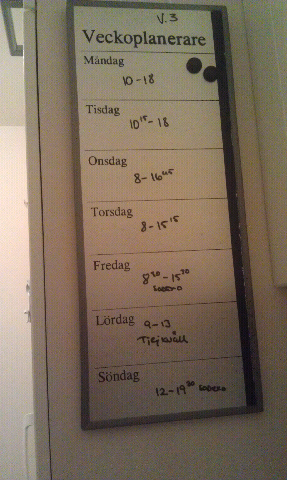 V.3
Veckoplanerare
Måndag
10-18
Tisdag
10¹⁵-18
Onsdag
8-16⁴⁵
Torsdag
8-15¹⁵
Fredag
8³⁰-15³⁰
Lördag
9-13
Tjejkväll
Söndag
12-19³⁰